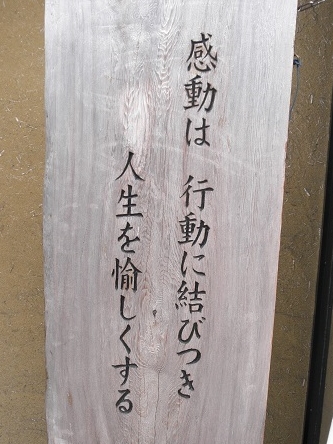 感動は　行動に結びつき
人生を愉しくする